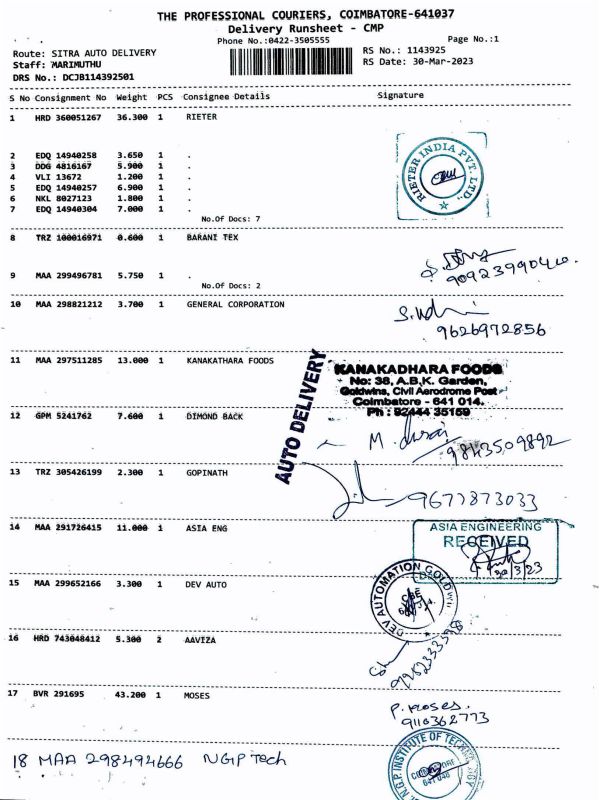 THE PROFESSIONAL COURIERS, COIMBATORE-641037
Delivery Runsheet - CMP
Phone No.:0422-3505555
Page No.:1
Route: SITRA AUTO DELIVERY
RS No.: 1143925
Staff: MARIMUTHU
RS Date: 30-Mar-2023
DRS No.: DCJB114392501
S No Consignment No Weight PCS Consignee Details Signature
1 HRD 360051267 36.300 1 RIETER
2 EDQ 14940258 3.650 1 .
3 DDG 4816167 5.900 1 .
4 VLI 13672 1.200 1 .
5 EDQ 14940257 6.900 1 .
6 NKL 8027123 1.800 1 .
7 EDQ 14940304 7.000 1 .
RIETER INDIA PVT. LTD.,
No.Of Docs: 7
8 TRZ 100016971 0.600 1 BARANI TEX
9 MAA 299496781 5.750 1 .
No.Of Docs: 2
10 MAA 298821212 3.700 1 GENERAL CORPORATION
9626972856
11 MAA 297511285 13.000 1 KANAKATHARA FOODS
AUTO DELIVERY
KANAKADHARA FOODS
No: 38, A.B.K. Garden,
Goldwins, Civil Aerodrome Post
Coimbatore - 641 014.
Ph : 92444 35159
12 GPM 5241762 7.600 1 DIMOND BACK
9843509892
13 TRZ 305426199 2.300 1 GOPINATH
9677873033
14 MAA 291726415 11.000 1 ASIA ENG
ASIA ENGINEERING
RECEIVED
30/3/23
15 MAA 299652166 3.300 1 DEV AUTO
DEV AUTOMATION
CBE
16 HRD 743048412 5.300 2 AAVIZA
17 BVR 291695 43.200 1 MOSES
P. Moses.
9110362773
18 MAA 298494666 NGP Tech
N.G.P. INSTITUTE OF TECHNOLOGY
COIMBATORE
641 048